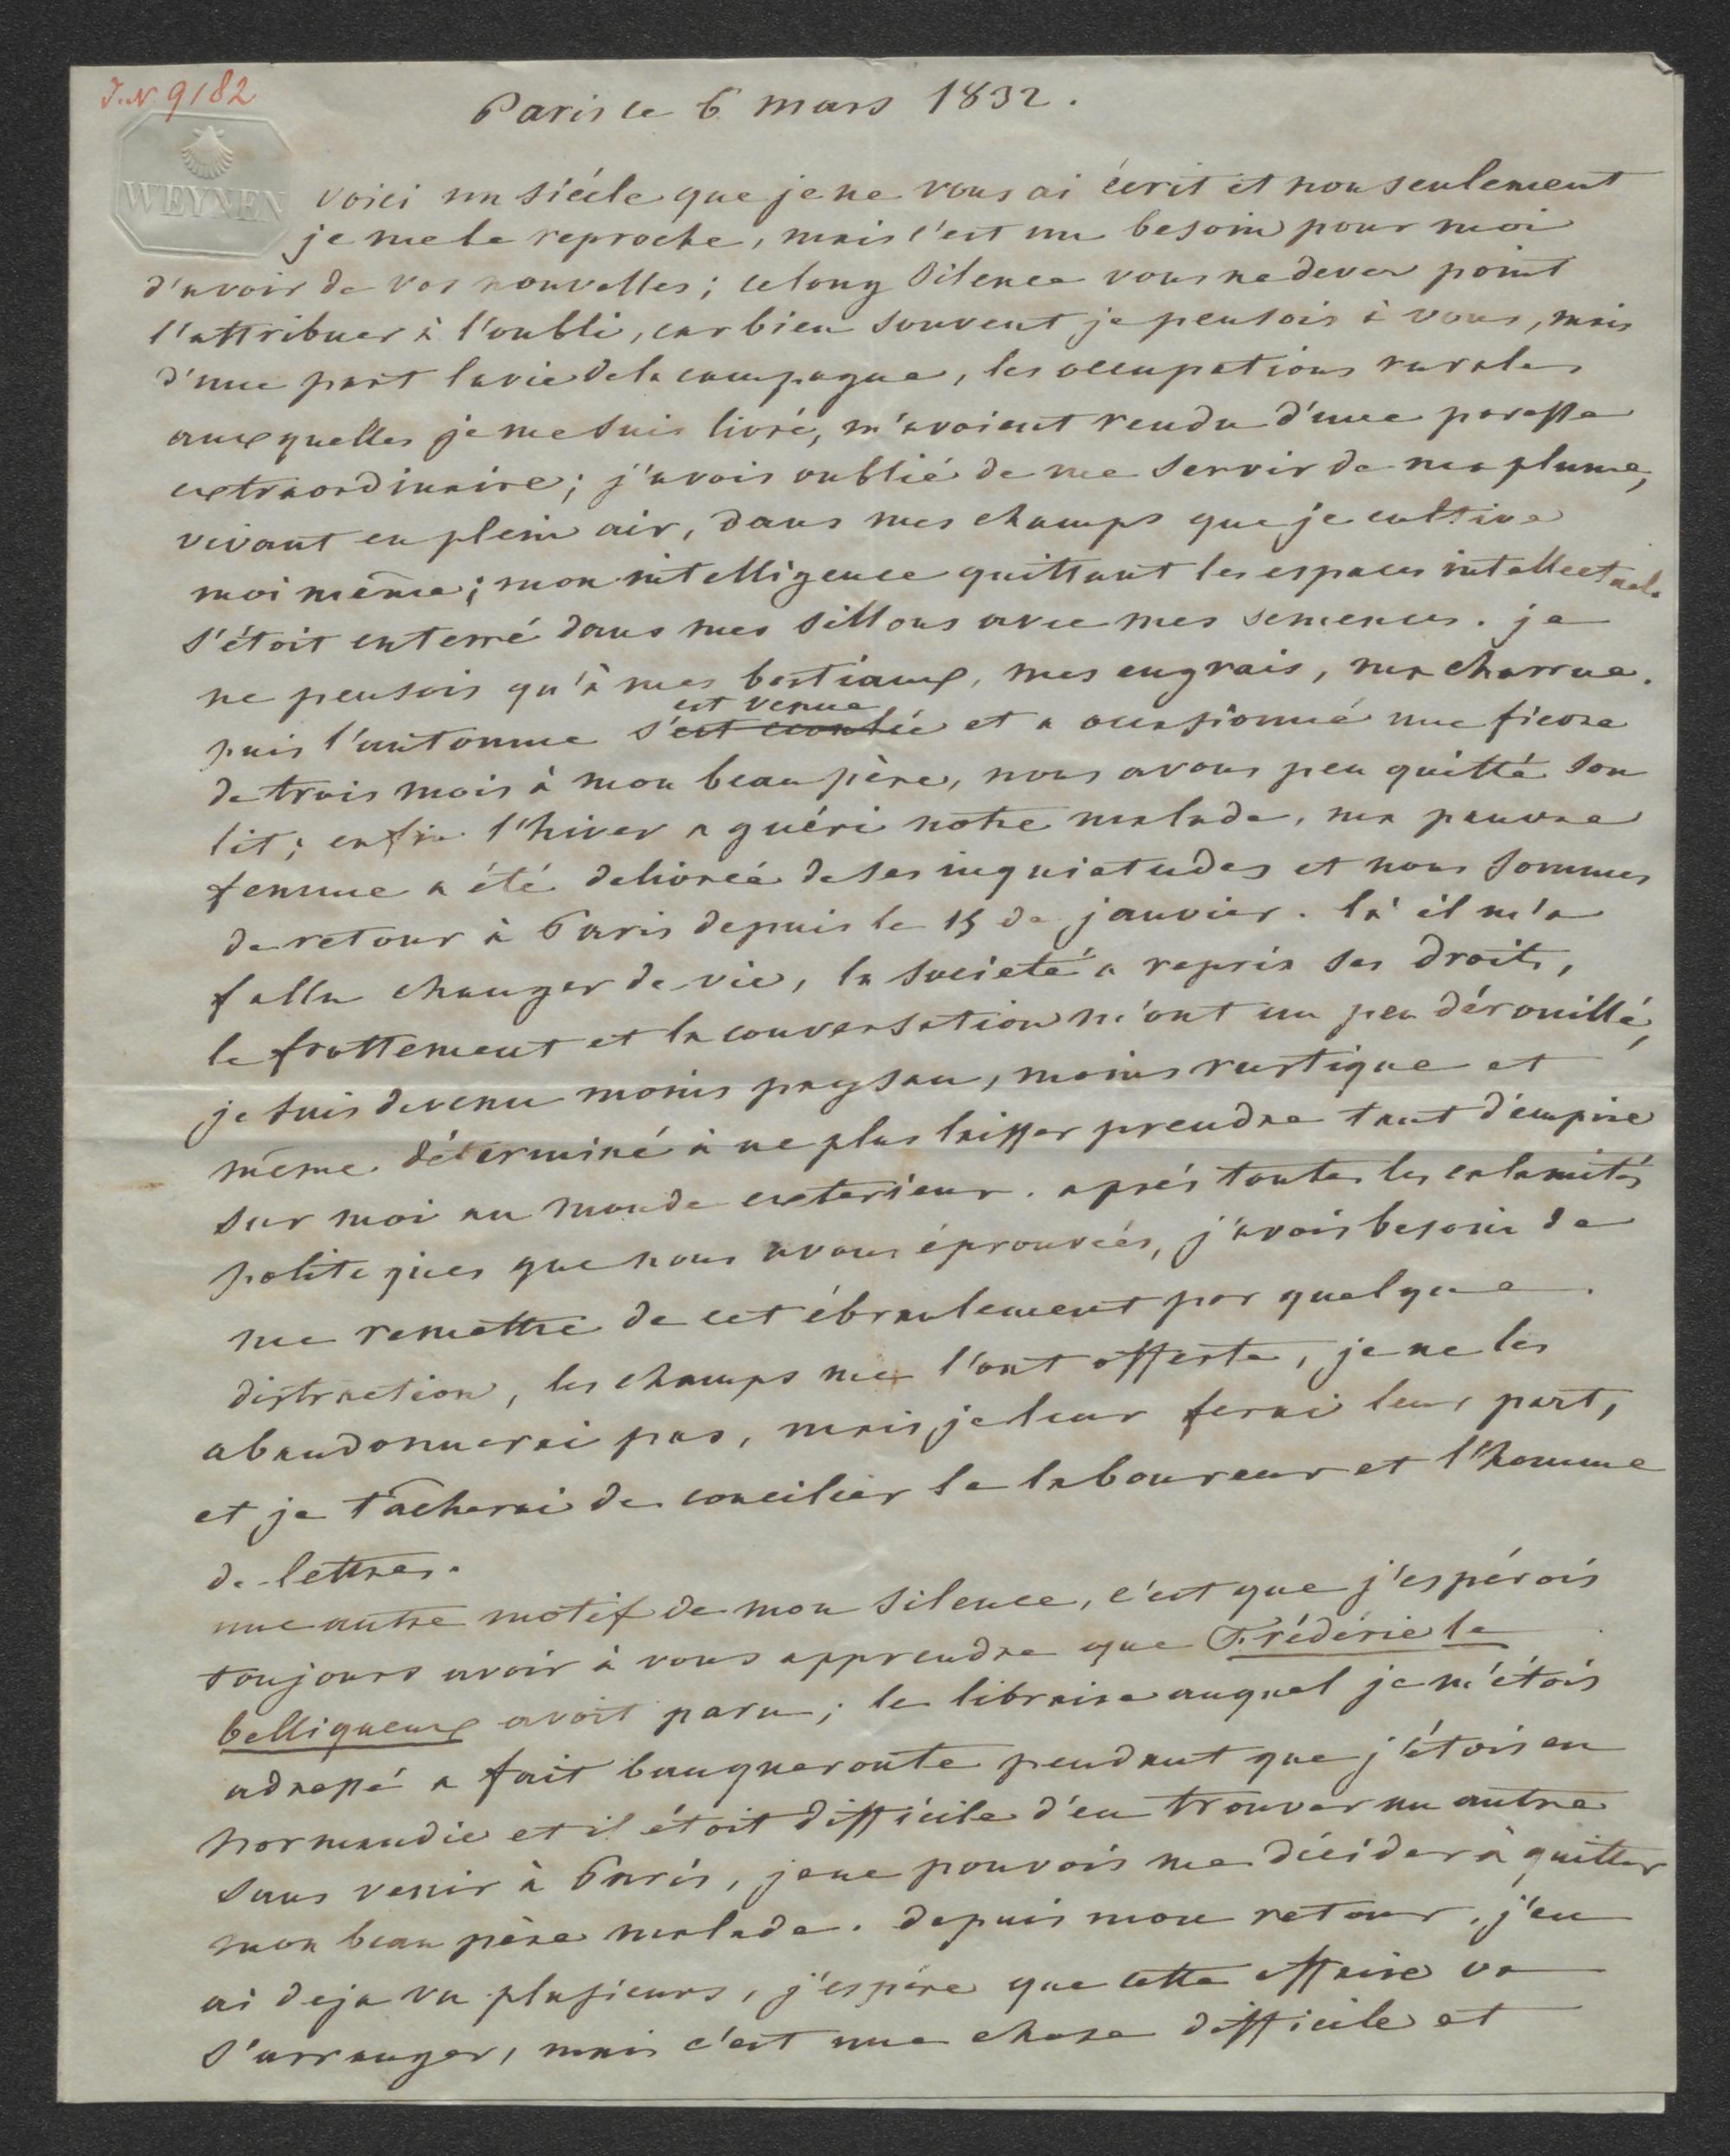 J.N. 9182
Paris le 6 mars 1832.
WEYNEN
voici un siécle que je ne vous ai écrit et non seulement
je me le reproche, mais c'est un besoin pour moi
d'avoir de vos nouvelles; ce long silence vous ne devez point
l'attribuer à l'oubli, car bien souvent je pensois à vous, mais
d'une part la vie de la campagne, les occupations rurales
auxquelles je me suis livré, m'avoient rendu d'une paresse
extraordinaire; j'avois oublié de me servir de ma plume,
vivant en plein air, dans mes champs que je cultive
moi même; mon intelligence quittant les espaces intellectuels
s'étoit enterré dans mes sillons avec mes semences. je
ne pensois qu'à mes bestiaux, mes engrais, ma charrue.
est venue
puis l'automne s'est ecoulée et a occasionné une fievre
de trois mois à mon beau père, nous avons peu quitté son
lit; enfin l'hiver a guéri notre malade, ma pauvre
femme a été delivrée de ses inquietudes et nous sommes
de retour à Paris depuis le 15 de janvier. là il m'a
fallu changer de vie, la societé a repris ses droits,
le frottement et la conversation m'ont un peu dérouillé,
je suis devenu moins paysan, moins rustique et
même déterminé à ne plus laisser prendre tant d'empire
sur moi au monde exterieur. aprés toutes les calamités
politiques que nous avons éprouvées, j'avois besoin de
me remettre de cet ébranlement par quelque
distraction, les champs me l'ont offerte, je ne les
abandonnerai pas, mais je leur ferai leur part,
et je tâcherai de concilier le laboureur et l'homme
de lettres.
une autre motif de mon silence, c'est que j'espérois
toujours avoir à vous apprendre que Frédéric le
belliqueux avoit paru; le libraire auquel je m'étois
adressé a fait banqueroute pendant que j'étois en
normandie et il étoit difficile d'en trouver un autre
sans venir à Paris, je ne pouvois me décider à quitter
mon beau père malade. depuis mon retour, j'en
ai deja vu plusieurs, j'espère que cette affaire va
s'arranger, mais c'est une chose difficile et